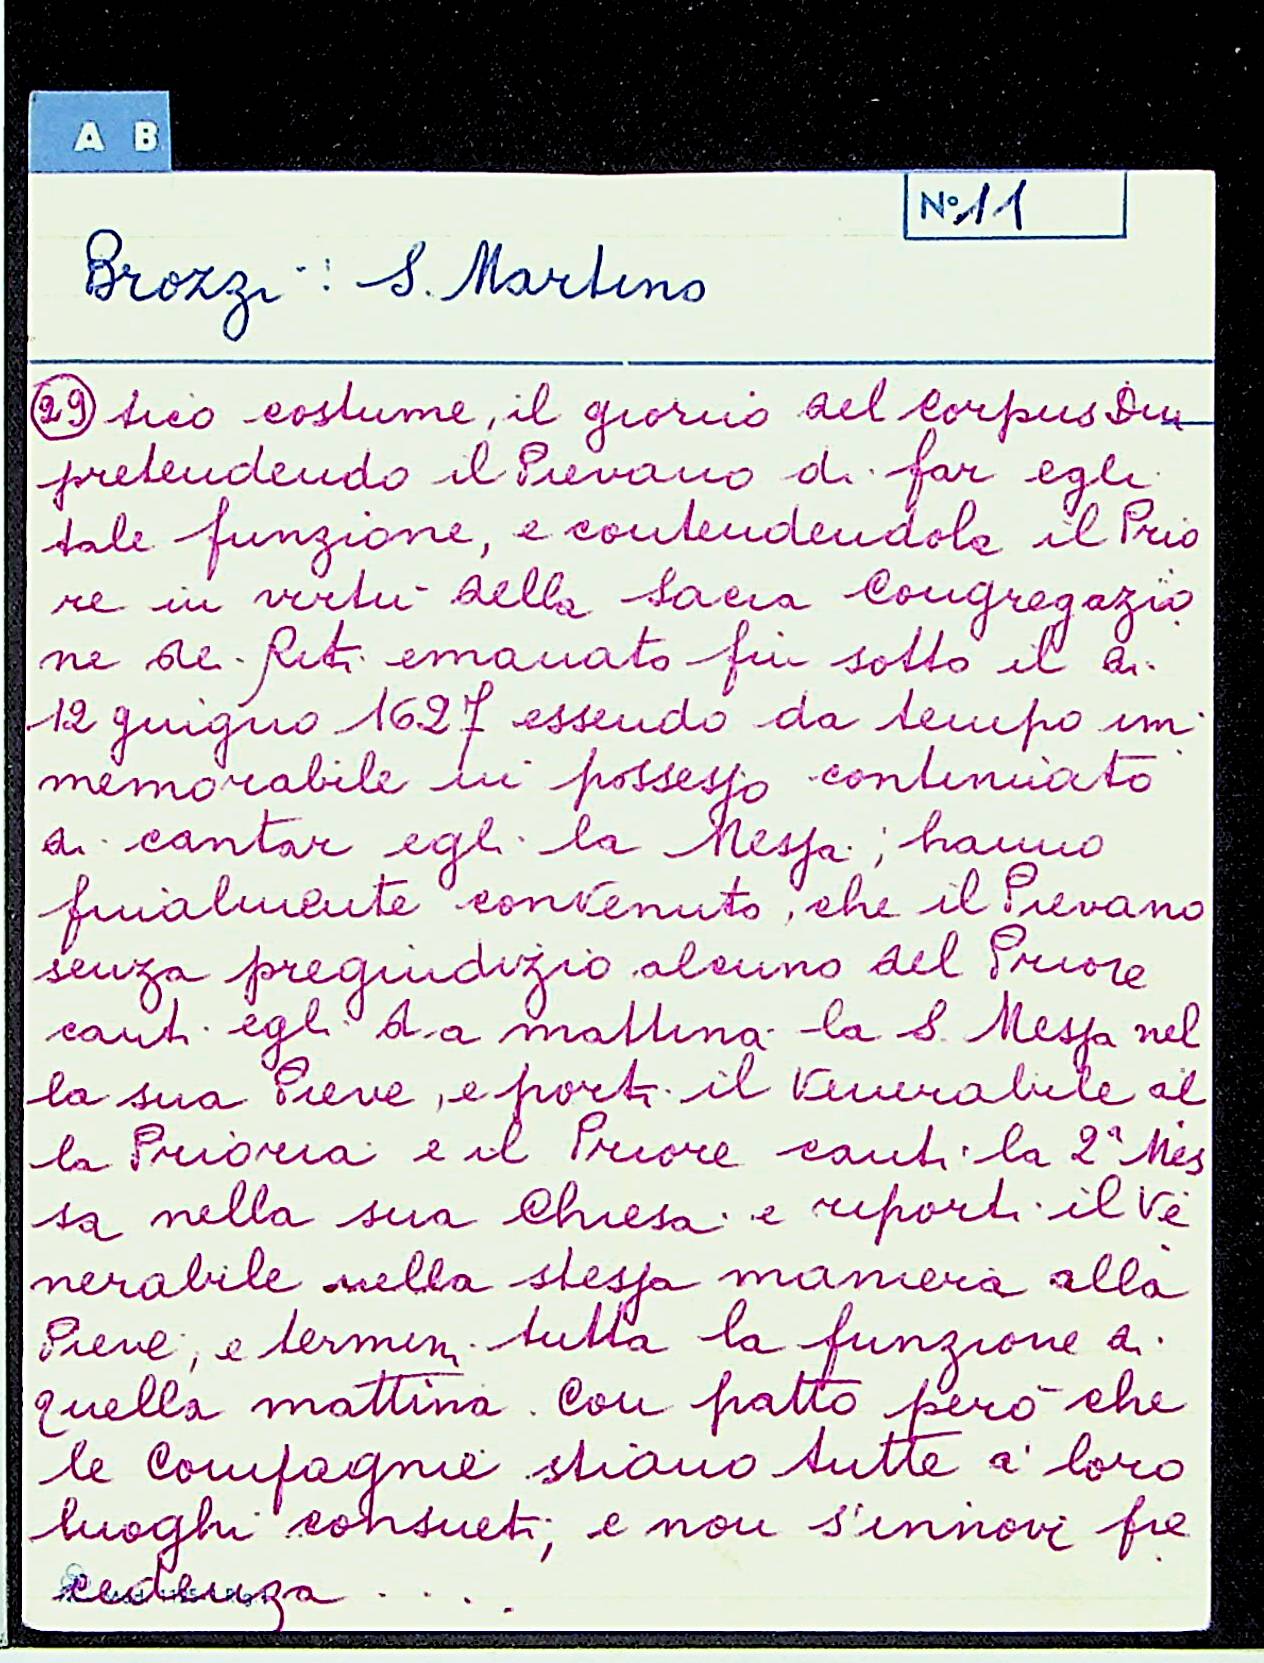 A B
N° 11
Brozzi : S. Martino
29 tico costume, il giorno del Corpus Dni
pretendendo il Pievano di far egli
tale funzione, e contendendola il Prio
re in virtù della Sacra Congregazio
ne de Riti emanato fin sotto il di
12 giugno 1627 essendo da tempo im
memorabile in possesso continuato
di cantar egli la Messa; hanno
finalmente convenuto, che il Pievano
senza pregiudizio alcuno del Priore
canti egli la mattina la S. Messa nel
la sua Pieve, e porti il Venerabile al
la Prioria e il Priore canti la 2ª Mes
sa nella sua Chiesa e riporti il Ve
nerabile nella stessa maniera alla
Pieve, e termini tutta la funzione di
quella mattina. Con patto però che
le Compagnie stiano tutte a' loro
luoghi consueti, e non s'innovi pre
cedenza ....